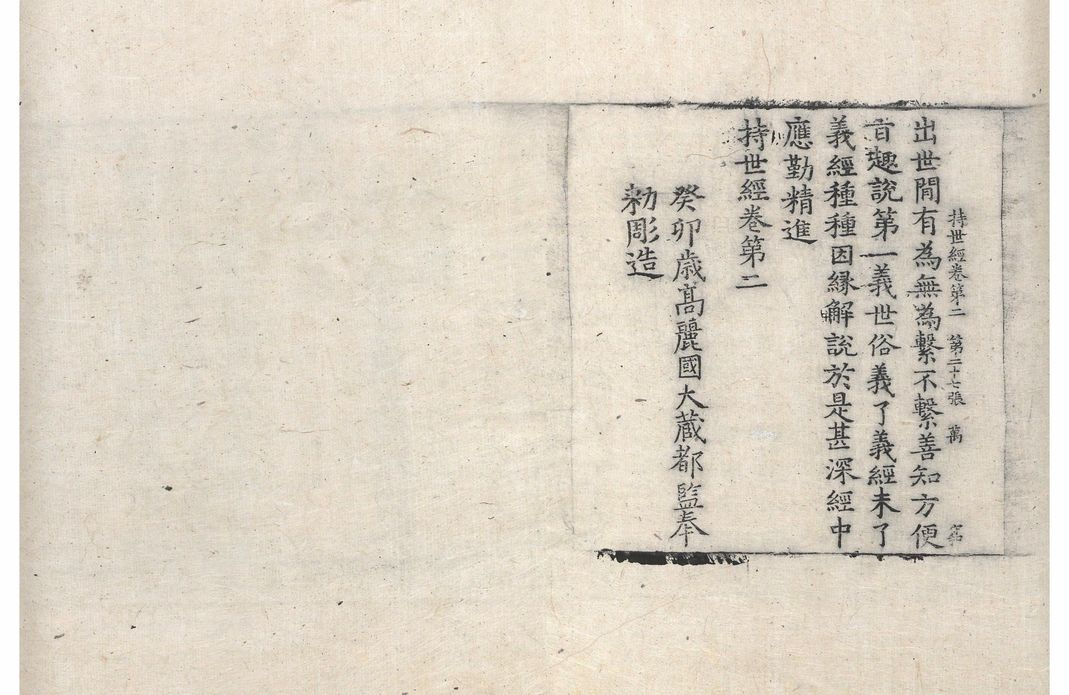 持世經卷第二 第二十七張 萬
出世間有為無為繫不繫善知方便
旨趣說第一義世俗義了義經未了
義經種種因緣解說於是甚深經中
應勤精進
持世經卷第二
癸卯歲高麗國大藏都監奉
勅彫造